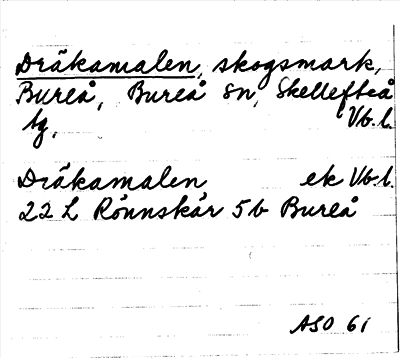 Dräkamalen, skogsmark,
Bureå, Bureå sn, Skellefteå
tg, Vb.l.
Dräkamalen ek Vb.l.
22 L Rönnskär 5b Bureå
ASO 61